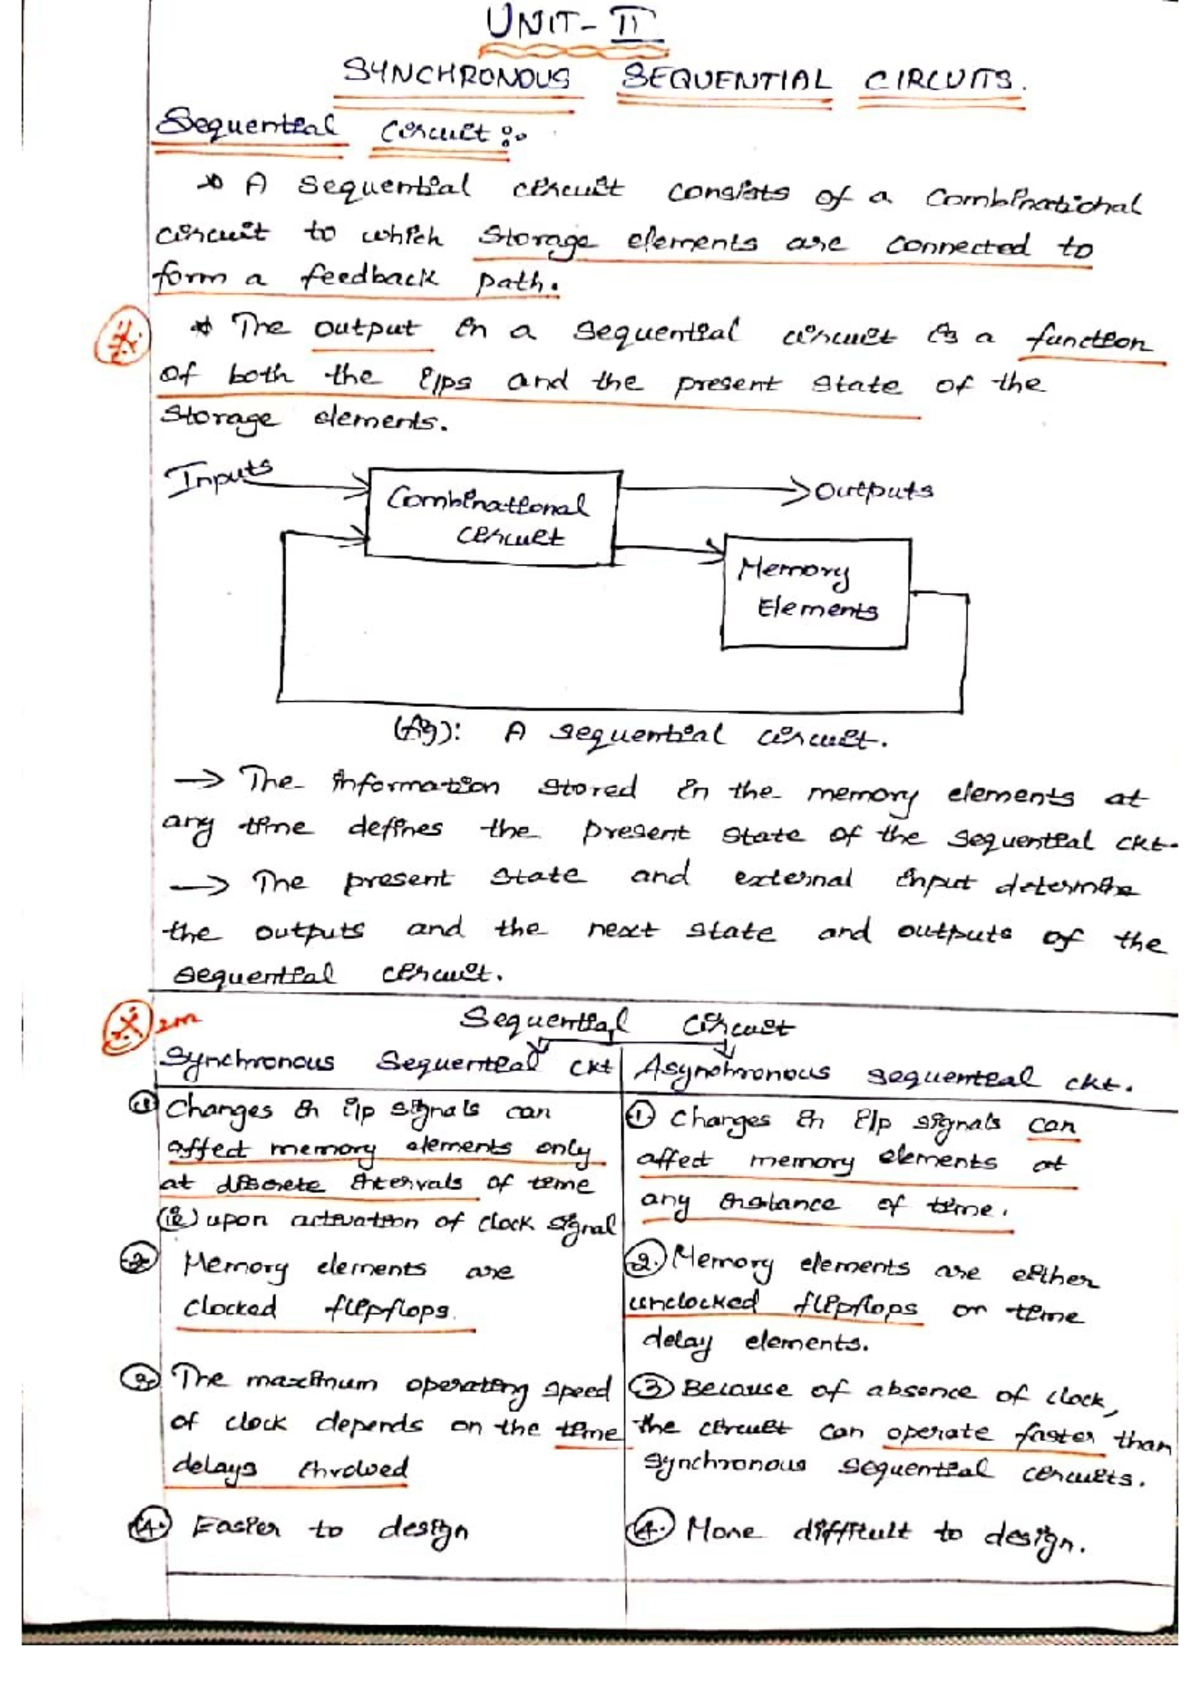 UNIT-II
SYNCHRONOUS SEQUENTIAL CIRCUITS.
Sequential Circuit:-
* A Sequential circuit consists of a combinational
circuit to which storage elements are connected to
form a feedback path.
* The output in a sequential circuit is a function
of both the i/ps and the present state of the
storage elements.
Inputs
Combinational
circuit
Outputs
Memory
Elements
(fig): A sequential circuit.
→ The information stored in the memory elements at
any time defines the present state of the sequential ckt.
→ The present state and external input determine
the outputs and the next state and outputs of the
sequential circuit.
2m
Sequential circuit
Synchronous Sequential ckt
① Changes in i/p signals can
affect memory elements only
at discrete intervals of time
(ie) upon activation of clock signal
② Memory elements are
clocked flipflops.
③ The maximum operating speed
of clock depends on the time
delays involved
④ Easier to design
Asynchronous sequential ckt.
① Changes in i/p signals can
affect memory elements at
any instance of time.
② Memory elements are either
unclocked flipflops or time
delay elements.
③ Because of absence of clock,
the circuit can operate faster than
synchronous sequential circuits.
④ More difficult to design.